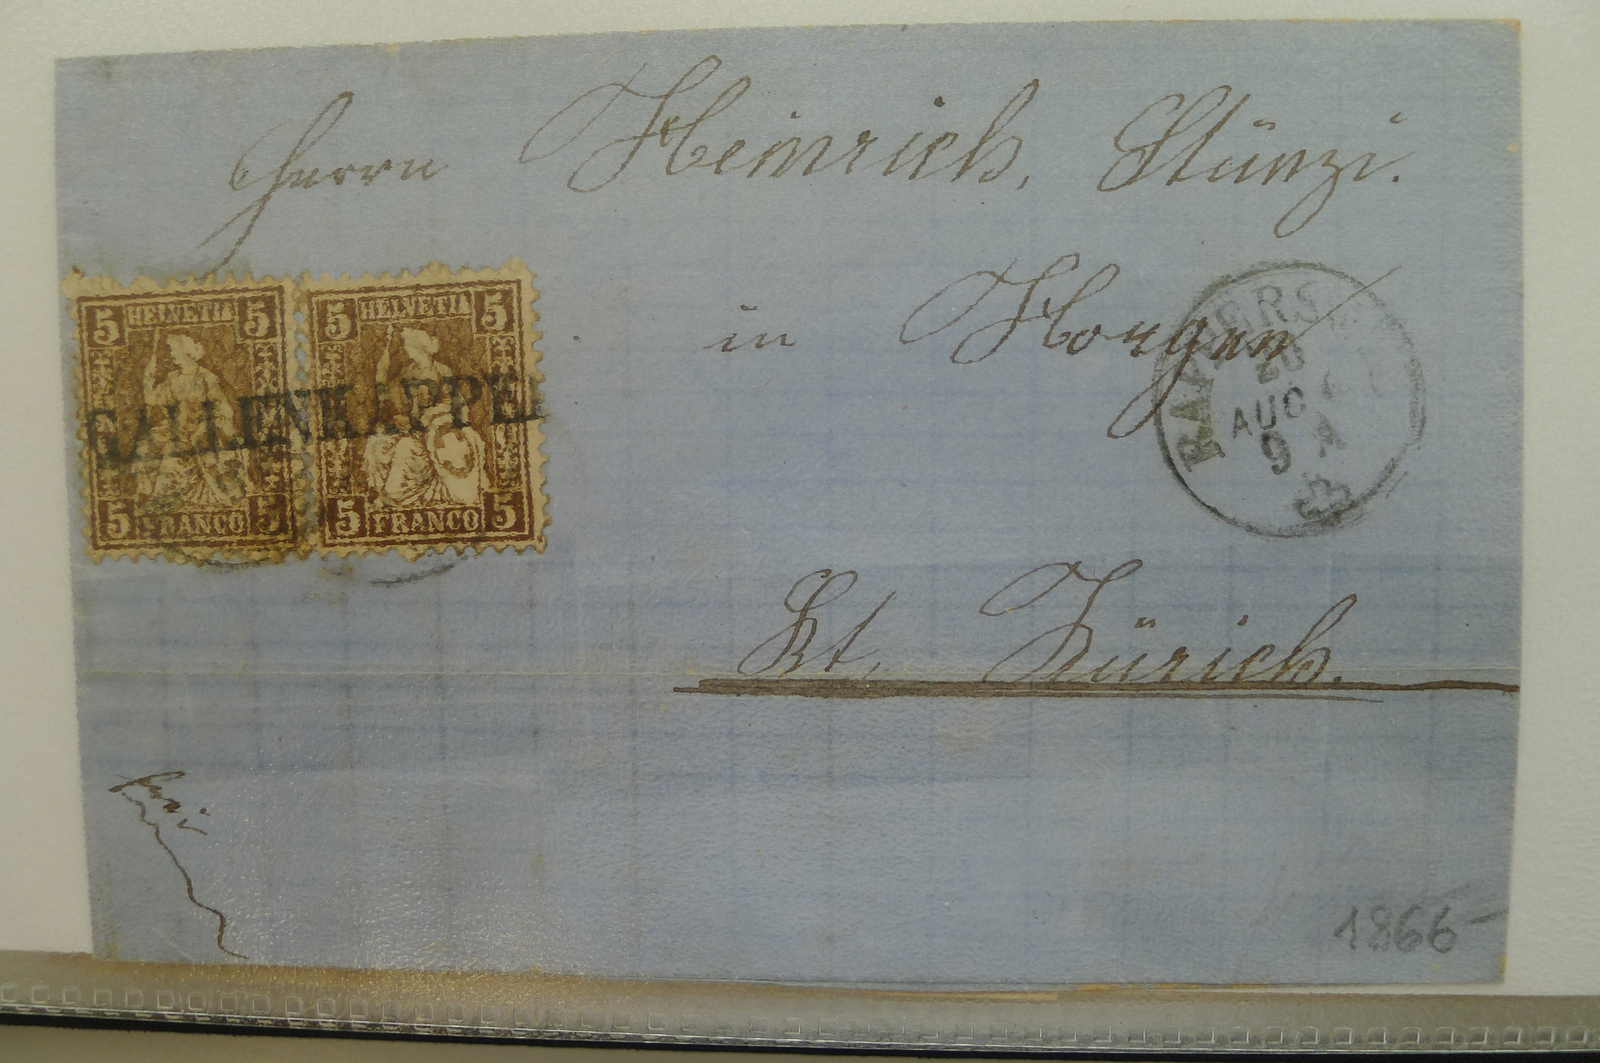 Herrn Heinrich Stünzi.
in Horgen
Kt. Zürich.
frei
5 HELVETIA 5
5 FRANCO 5
5 HELVETIA 5
5 FRANCO 5
GALLENKAPPEL
RAPPERS
20
AUG
9 A
1866